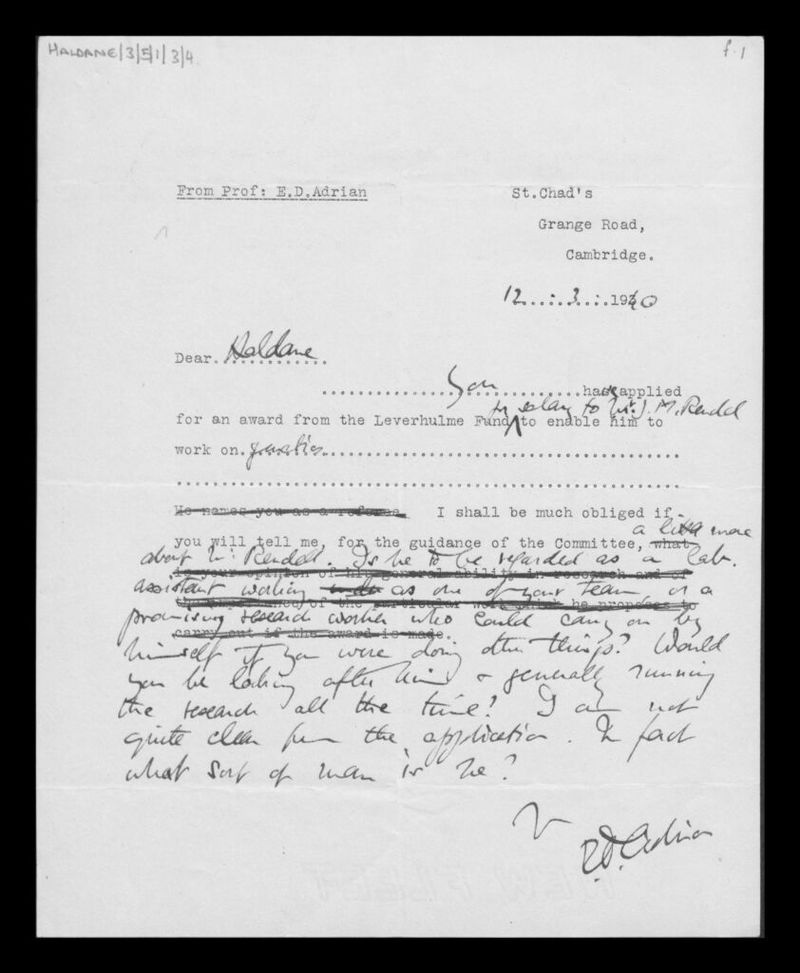 HALDANE/3/5/1/3/4
f.1
From Prof: E.D.Adrian
St.Chad's
Grange Road,
Cambridge.
12....:.3..:.1940
Dear. Haldane
......You......have applied
for salary to Mr. J. M. Rendel
for an award from the Leverhulme Fund to enable him to
work on. genetics
He names you as a referee. I shall be much obliged if
you will tell me, for the guidance of the Committee, what a little more
about Mr. Rendel. Is he to be regarded as a lab.
is your opinion of his general ability in research and of
assistant working as one of your team or a
the importance of the particular work which he proposes to
promising research worker who could carry on by
carry out if the award is made.
himself if you were doing other things? Would
you be looking after him & generally running
the research all the time? I am not
quite clear from the application. In fact
what sort of man is he?
E.D. Adrian